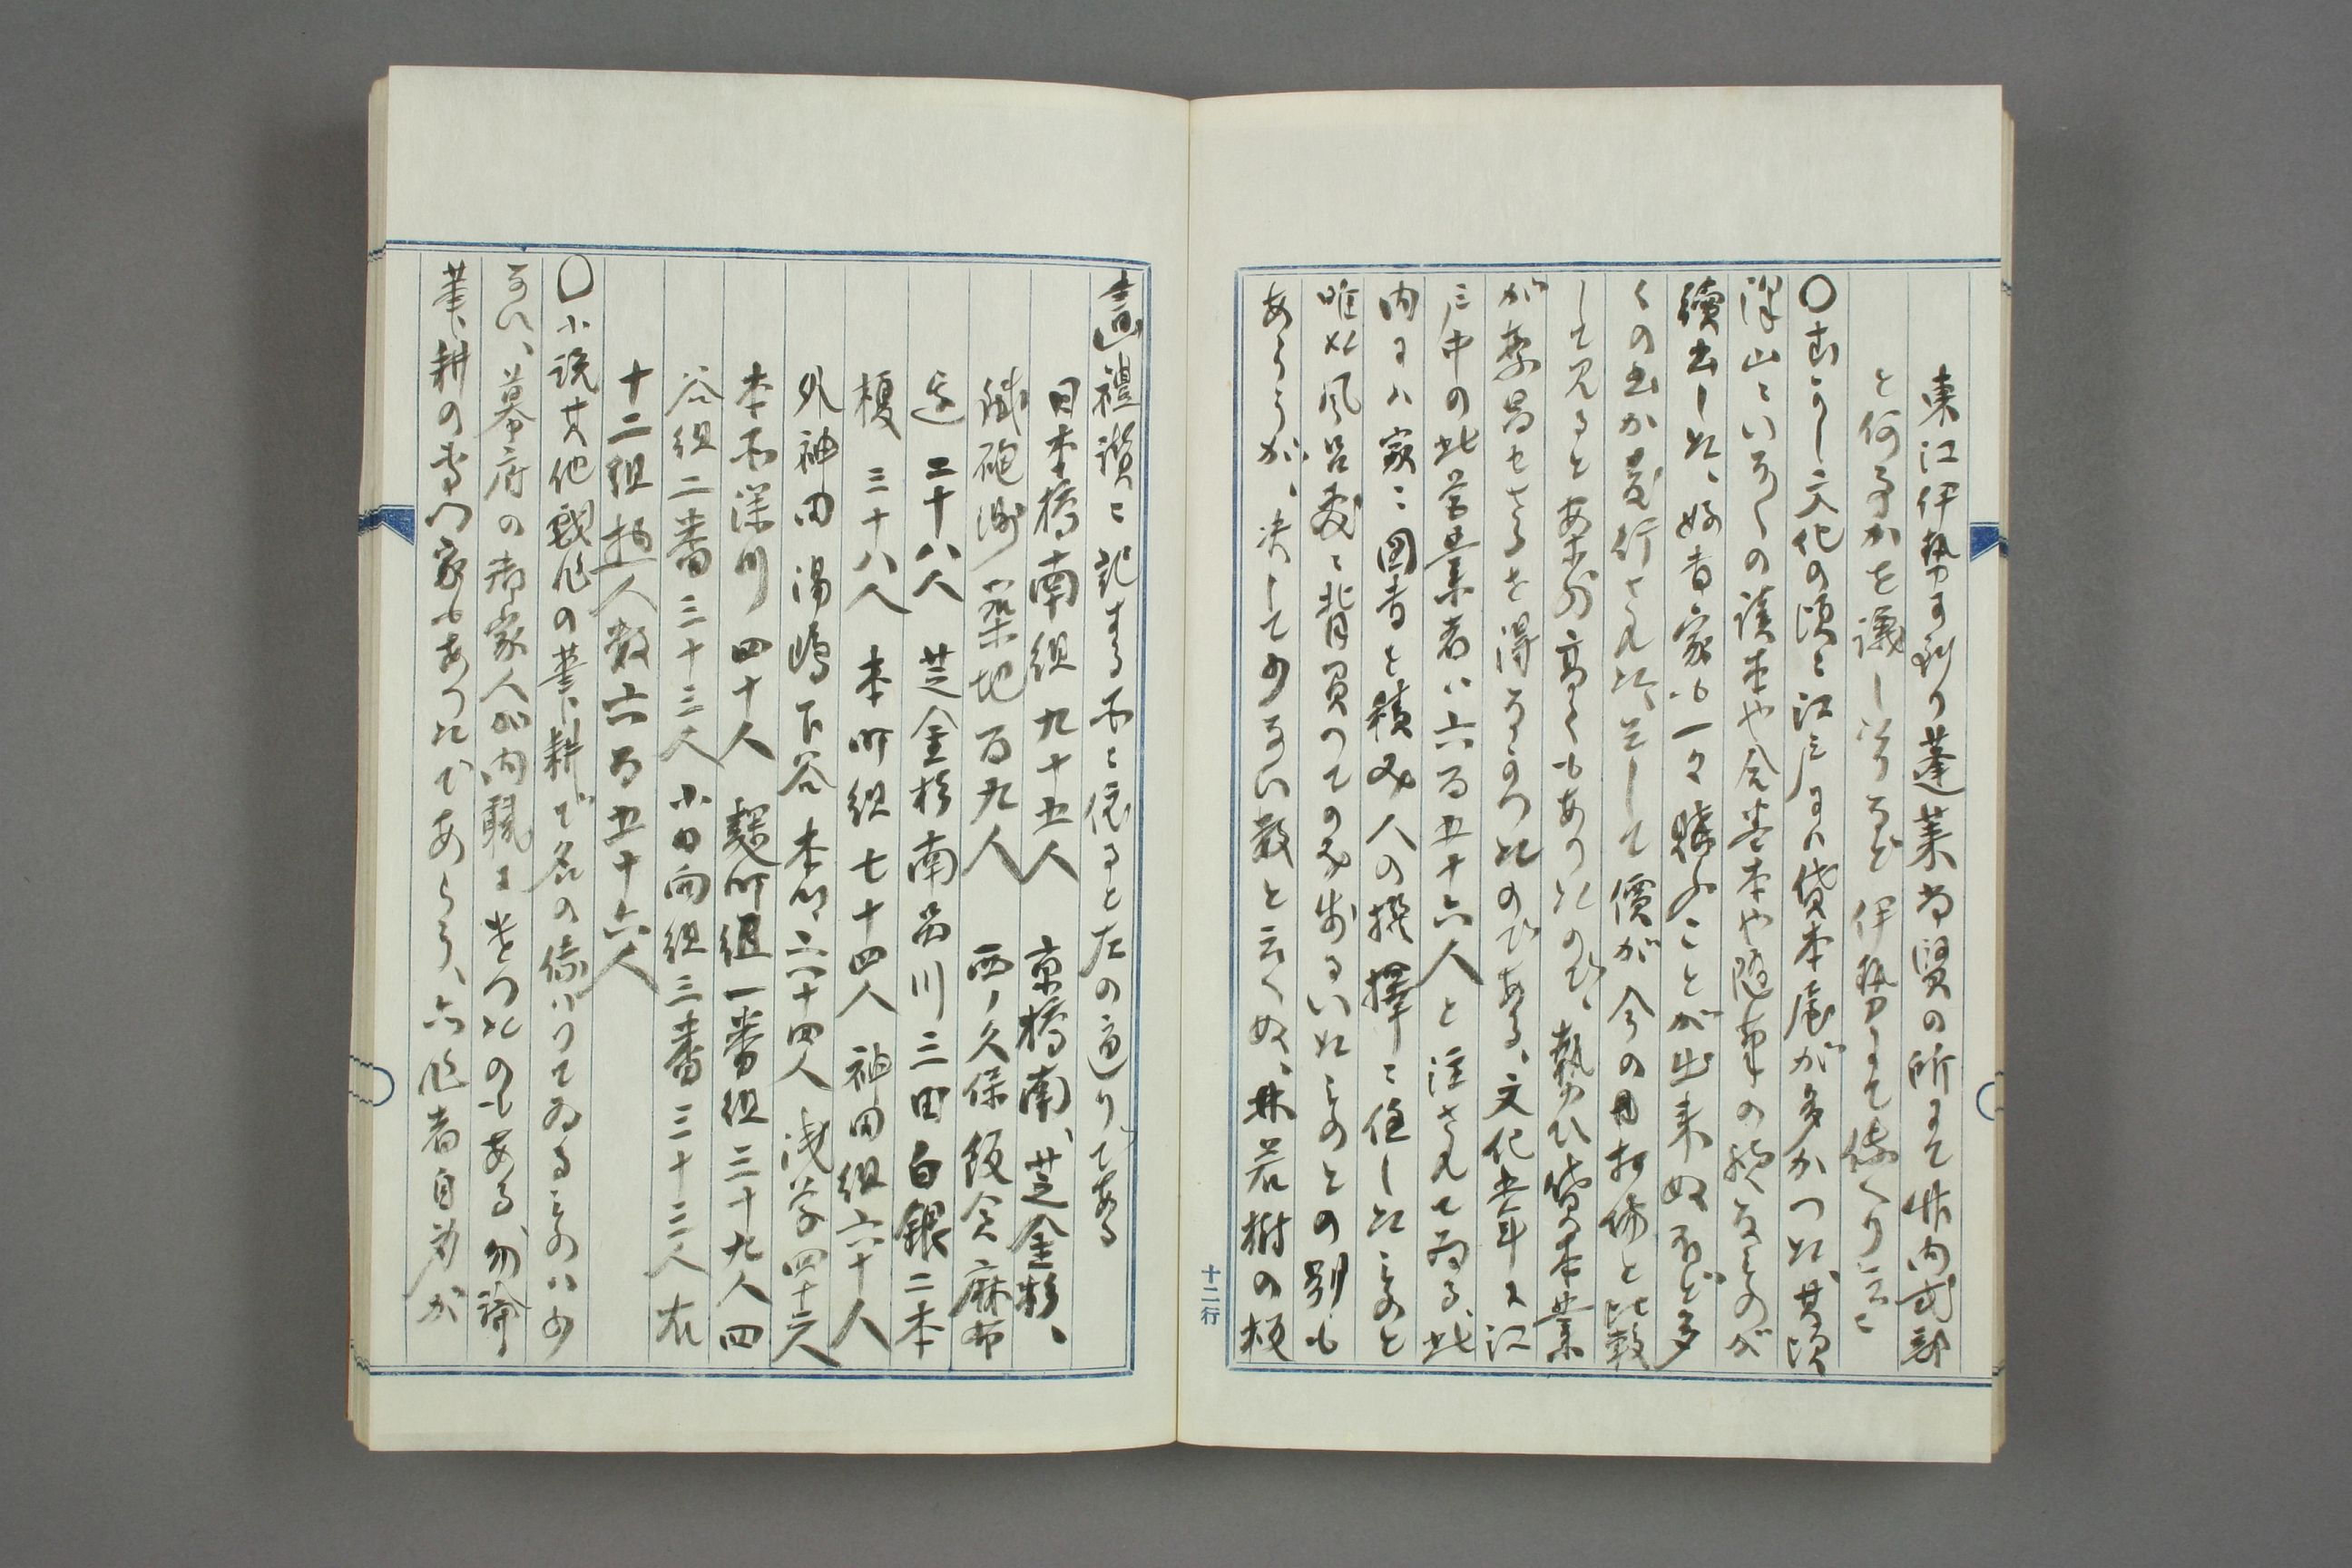 東江伊勢に到り蓬莱尚賢の所にて竹内式部
と何事かを議し後など伊勢にて傳へり云々
〇むかし文化の頃に江戸には貸本屋が多かつた、其頃
澤山にいろ〳〵の讀本や合巻本や随筆の類なものが
續出した、好書家も一々購ふことが出来ぬほど多
くの出か發行された、そして價が今の日相場と比較
して見ると案外高くもあつたので、勢ひ貸本業
が繁昌せざるを得なかつたのである、文化五年に江
戸中の此営業者は六百五十六人と注されてゐる、此
内には家に図書を積み人の撰擇に任したものと
唯だ風呂敷に背負つてのみ歩るいたものとの別も
あらうが、決して少ない数と云へぬ、林若樹の板
畫禮讃に記する所に依ると左の通りである
日本橋南組 九十五人 京橋南、芝金杉、
鐵砲洲 築地 百九人 西ノ久保 飯倉 麻布
辺 二十八人 芝金杉南 品川 三田 白銀 二本
榎 三十八人 本所組 七十四人 神田組 六十人
外神田 湯嶋 下谷 本郷 六十四人 浅草 四十三人
本所深川 四十人 麹町組 一番組 三十九人 四
谷組 二番 三十三人 小日向組 三番 三十三人 右
十二組 惣人数六百五十六人
〇小説其他戯作の筆耕で名の傳はつてゐるものは少
ない、幕府の御家人が内職に書つたのもある、勿論
筆耕の専門家もあつたであらう、六作者自身が
十二行